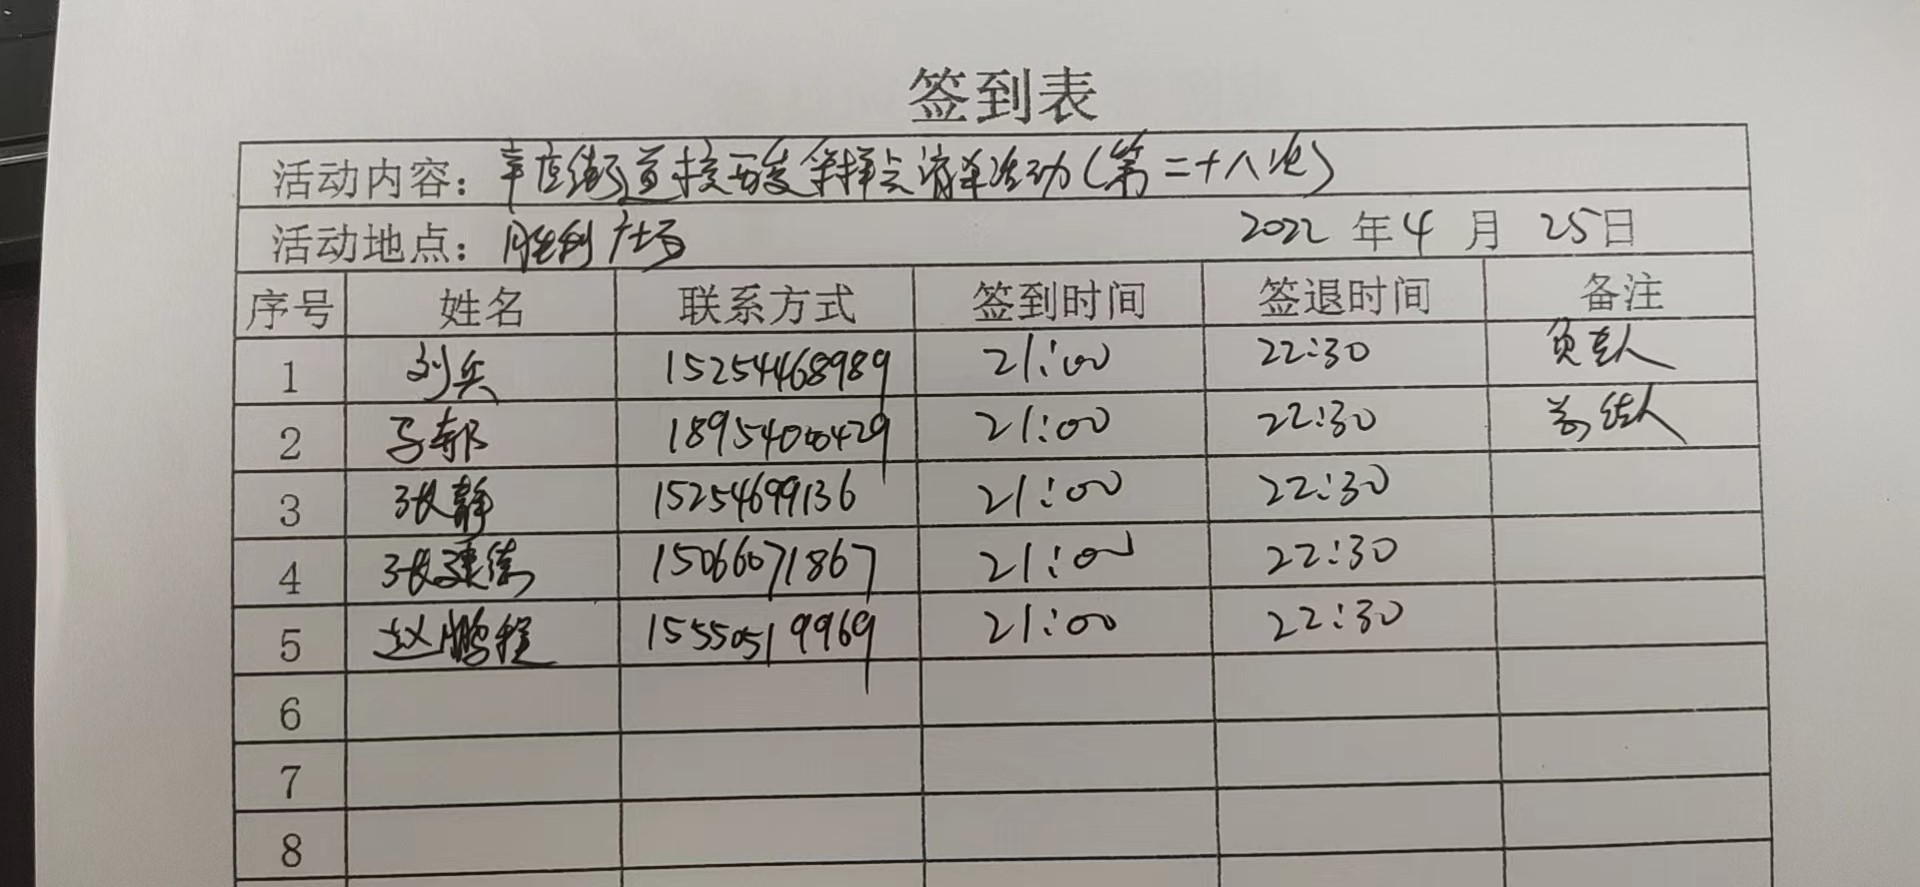 签到表
活动内容：辛店街道核酸采样点清杀活动(第二十八次)
活动地点：胜利广场 2022年4月25日
序号 姓名 联系方式 签到时间 签退时间 备注
1 刘兵 15254468989 21:00 22:30 负责人
2 18954004429 21:00 22:30
3 张静 15254699136 21:00 22:30
4 张建 15066071867 21:00 22:30
5 赵鹏程 15550519969 21:00 22:30
6
7
8